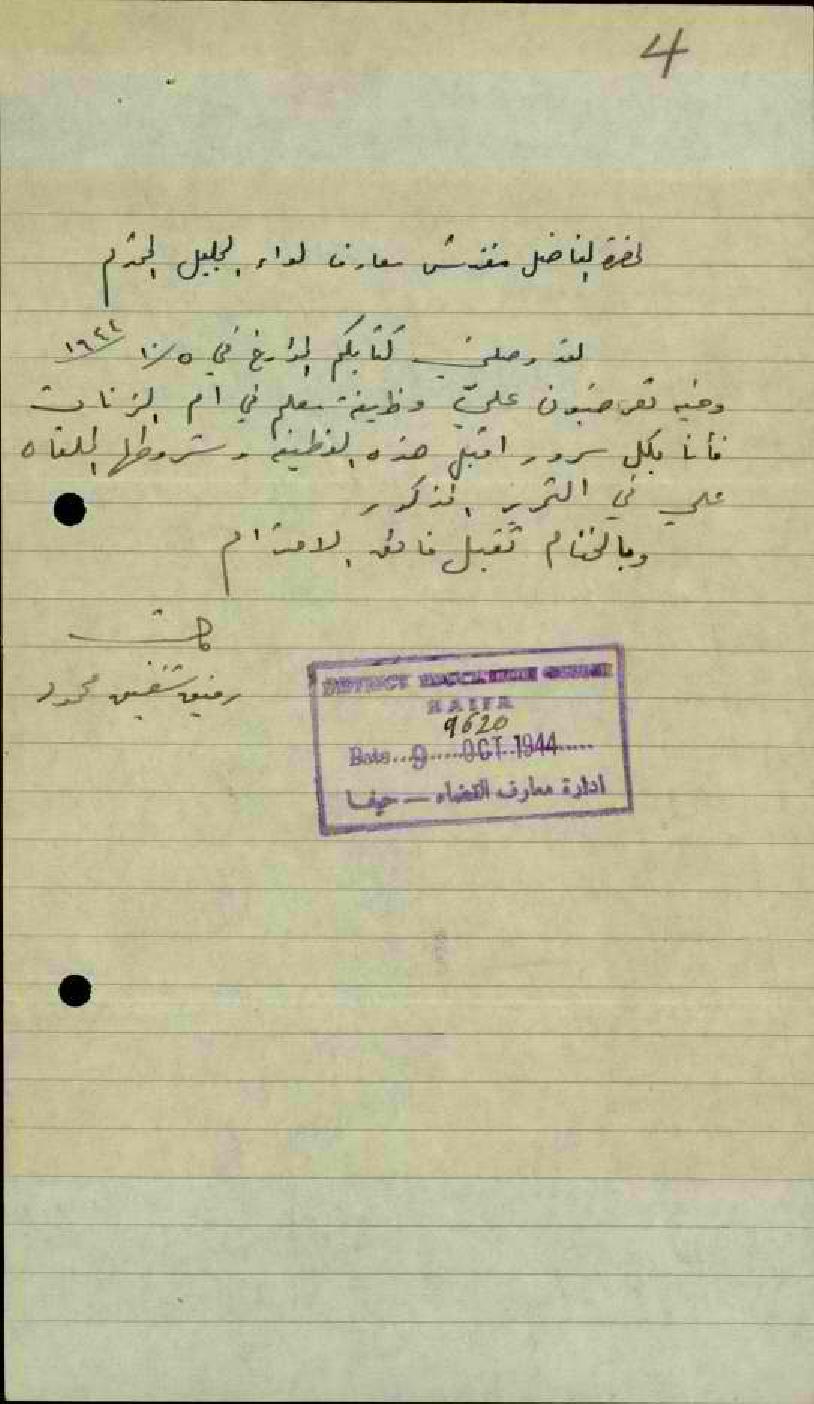 4
لحضرة الفاضل مفتش معارف لواء الجليل المحترم
لقد وصلني كتابكم المؤرخ في ٥/١٠/١٩٤٤
وفيه تعرضون عليّ وظيفة معلم في ام الزينات
فأنا بكل سرور اقبل هذه الوظيفة وشروطها الملقاه
علي في التحرير المذكور
وبالختام تقبل فائق الاحترام
رفيق شفيق محمود
DISTRICT EDUCATION OFFICE
HAIFA
9620
Date...9....OCT.1944.....
ادارة معارف القضاء — حيفا